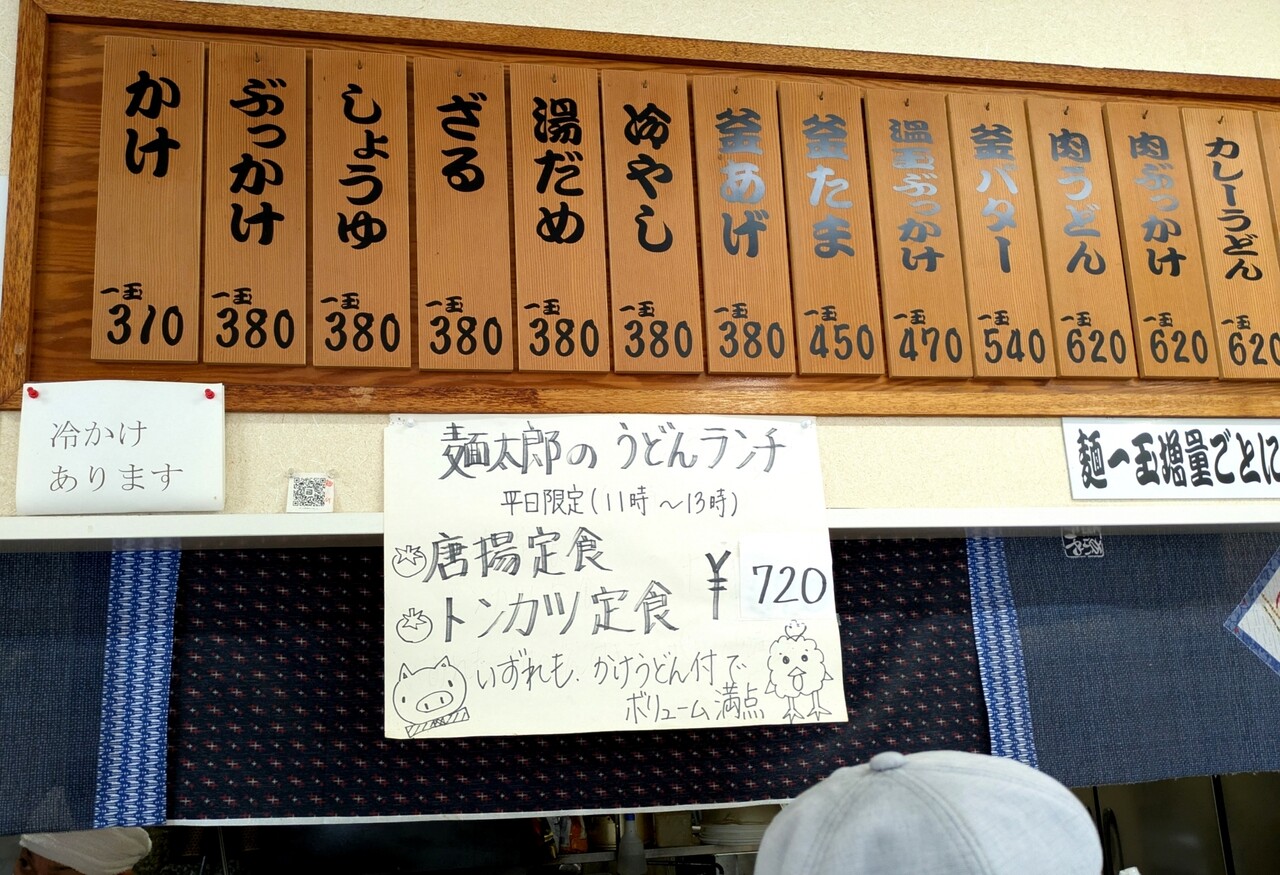 かけ
一玉
310
ぶっかけ
一玉
380
しょうゆ
一玉
380
ざる
一玉
380
湯だめ
一玉
380
冷やし
一玉
380
釜あげ
一玉
380
釜たま
一玉
450
温玉ぶっかけ
一玉
470
釜バター
一玉
540
肉うどん
一玉
620
肉ぶっかけ
一玉
620
カレーうどん
一玉
620
冷かけ
あります
麺太郎のうどんランチ
平日限定(11時～13時)
唐揚定食
トンカツ定食
¥720
いずれも、かけうどん付で
ボリューム満点
麺一玉増量ごとに